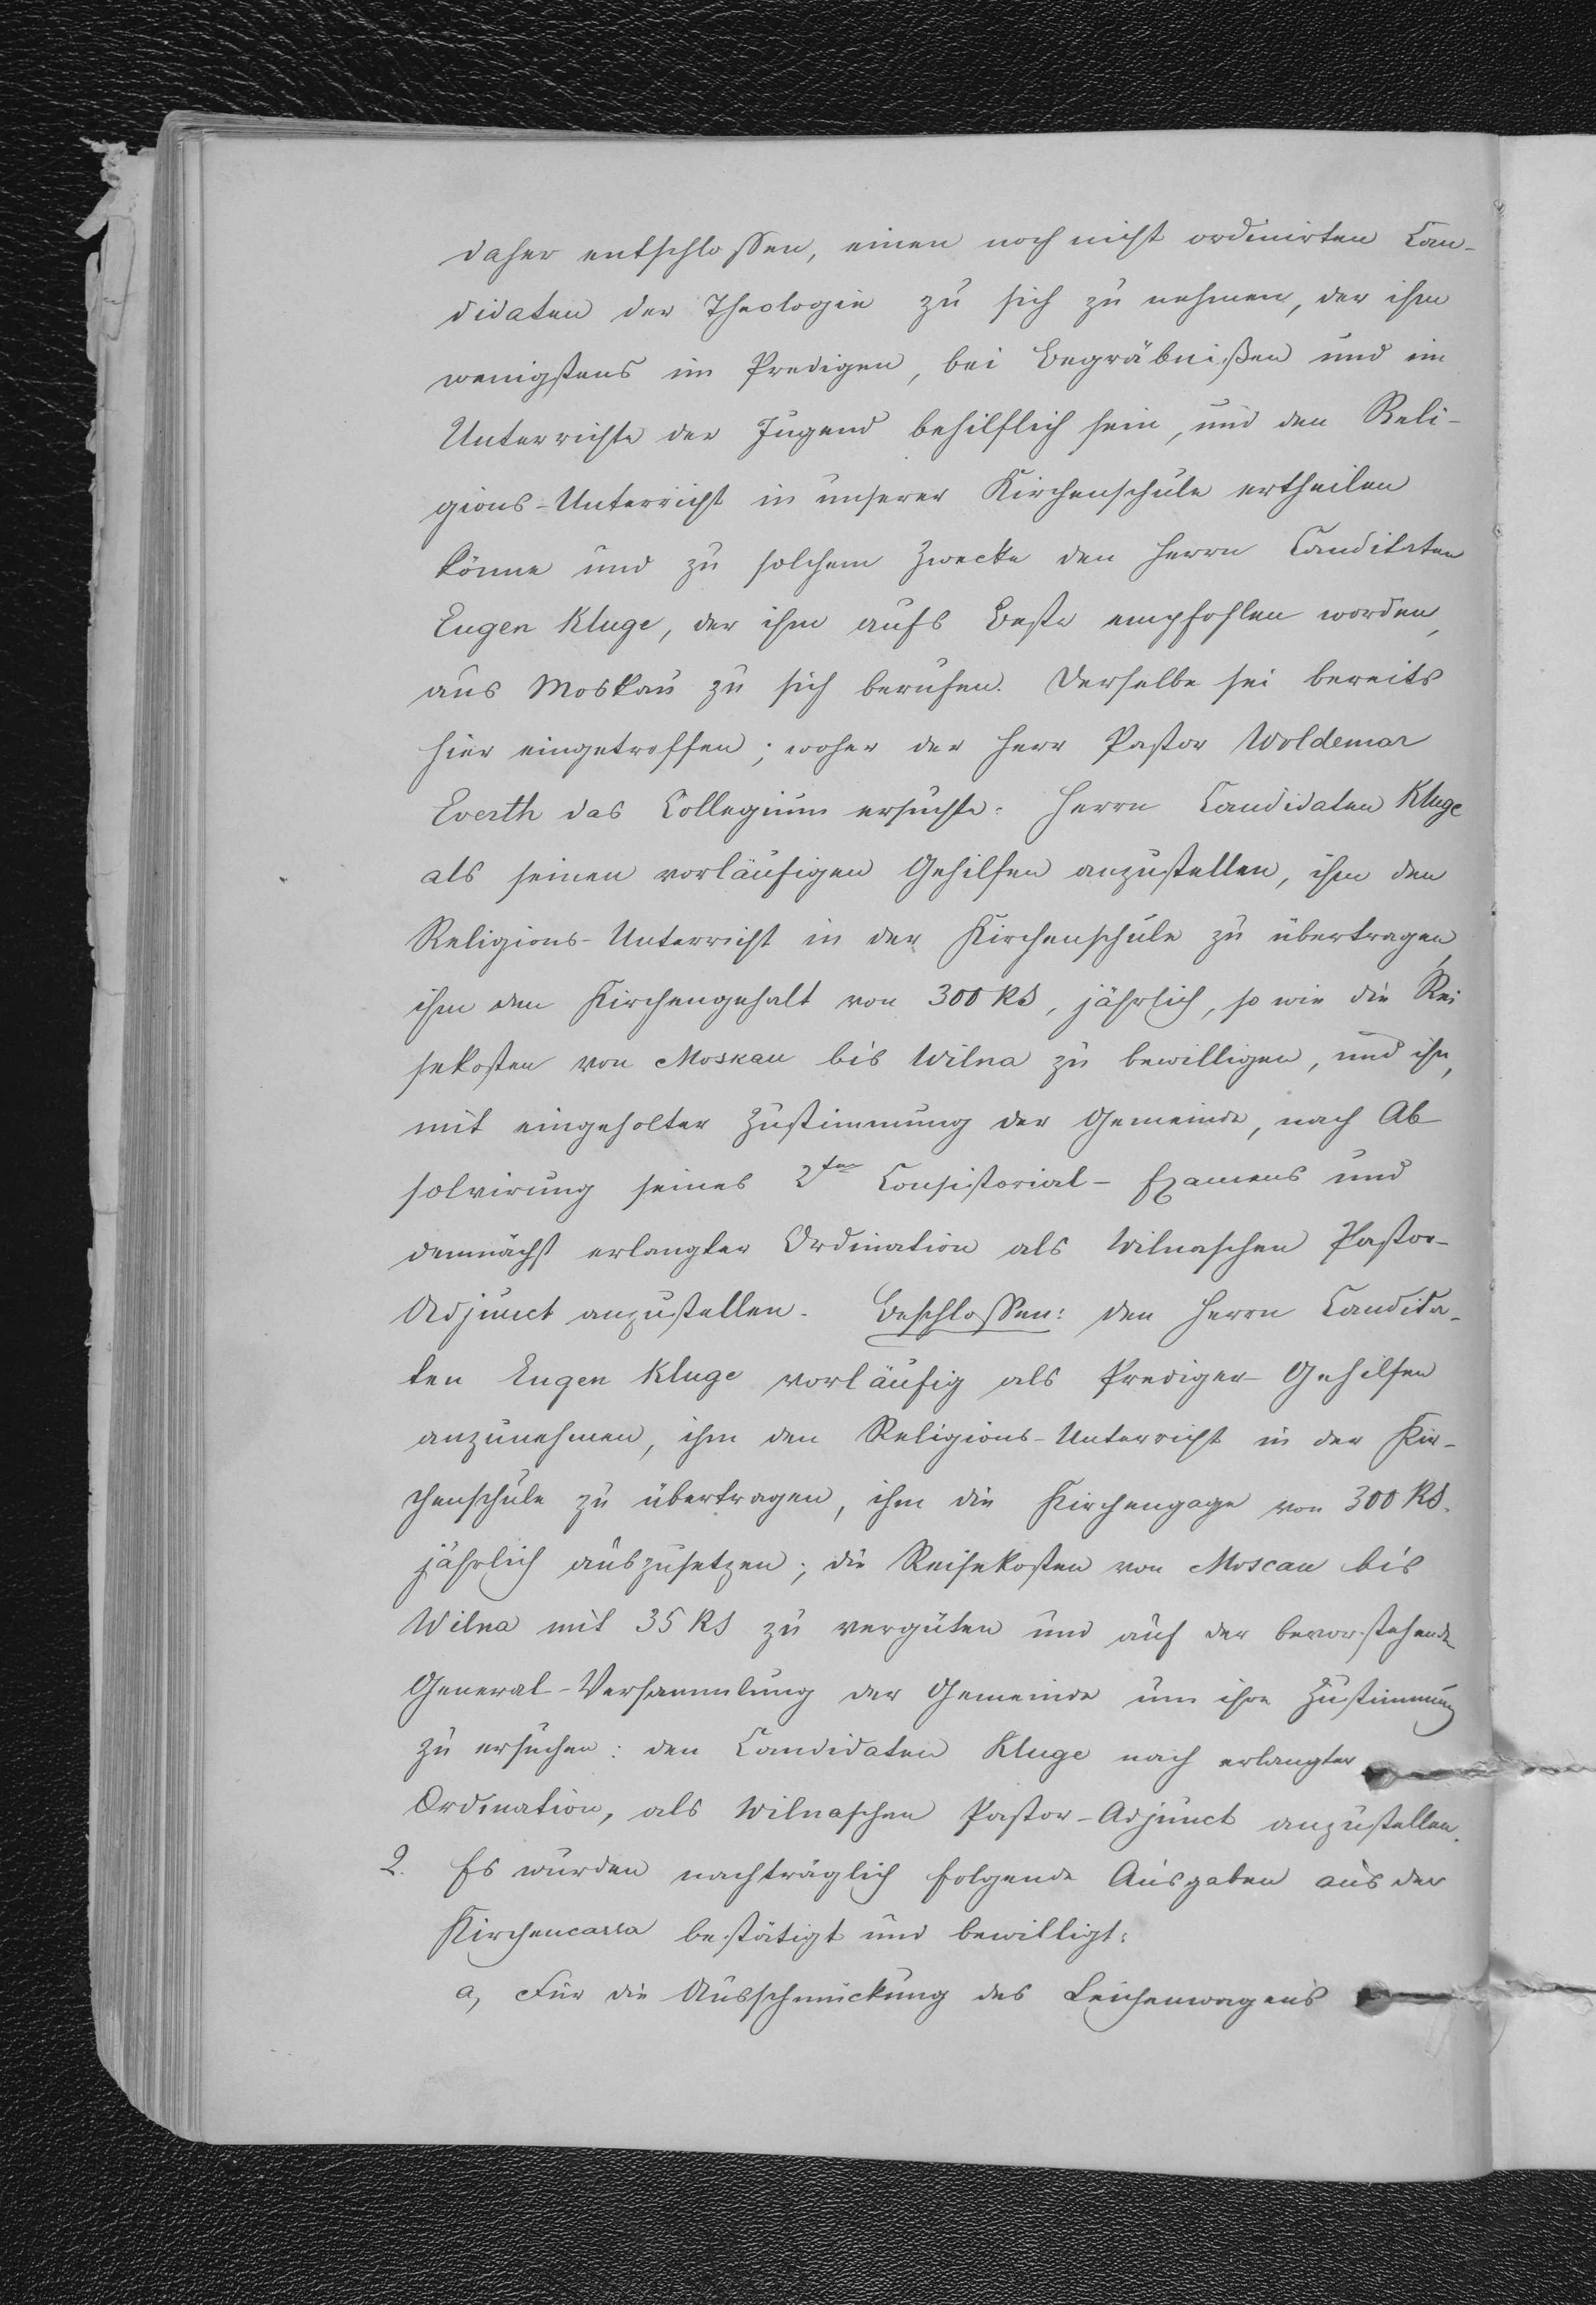 daher entschlossen, einen noch nicht ordinirten Can-
didaten der Theologie zu sich zu nehmen, der ihm
wenigstens im Predigen, bei Begräbnißen und im
Unterrichte der Jugend behilflich sein, und den Reli-
gions-Unterricht in unserer Kirchenschule ertheilen
könne und zu solchem Zwecke den Herrn Canditaten
Eugen Kluge, der ihm aufs Beste empfohlen worden,
aus Moskau zu sich berufen. Derselbe sei bereits
hier eingetroffen; woher der Herr Pastor Woldemar
Everth das Collegium ersuchte: Herrn Candidaten Kluge
als seinen vorläufigen Gehilfen anzustellen, ihm den
Religions-Unterricht in der Kirchenschule zu übertragen,
ihm den Kirchengehalt von 300 RS, jährlich, so wie die Rei
sekosten von Moskau bis Wilna zu bewilligen, und ihn,
mit eingeholter Zustimmung der Gemeinde, nach Ab
solvirung seines 2ten Consistorial-Examens und
demnächst erlangter Ordination als Wilnaschen Pastor-
Adjunct anzustellen. Beschlossen: den Herrn Candida-
ten Eugen Kluge vorläufig als Prediger-Gehilfen
anzunehmen, ihm den Religions-Unterricht in der Kir-
chenschule zu übertragen, ihm die Kirchengage von 300 RS.
jährlich auszusetzen; die Reisekosten von Moscau bis
Wilna mit 35 RS zu vergüten und auf der bevorstehende
General-Versammlung der Gemeinde um ihre Zustimmung
zu ersuchen: den Candidaten Kluge nach erlangter
Ordination, als Wilnaschen Pastor-Adjunct anzustellen.
2. Es wurden nachträglich folgende Ausgaben aus der
Kirchencassa bestätigt und bewilligt:
a, Für die Ausschmückung des Leichenwagens